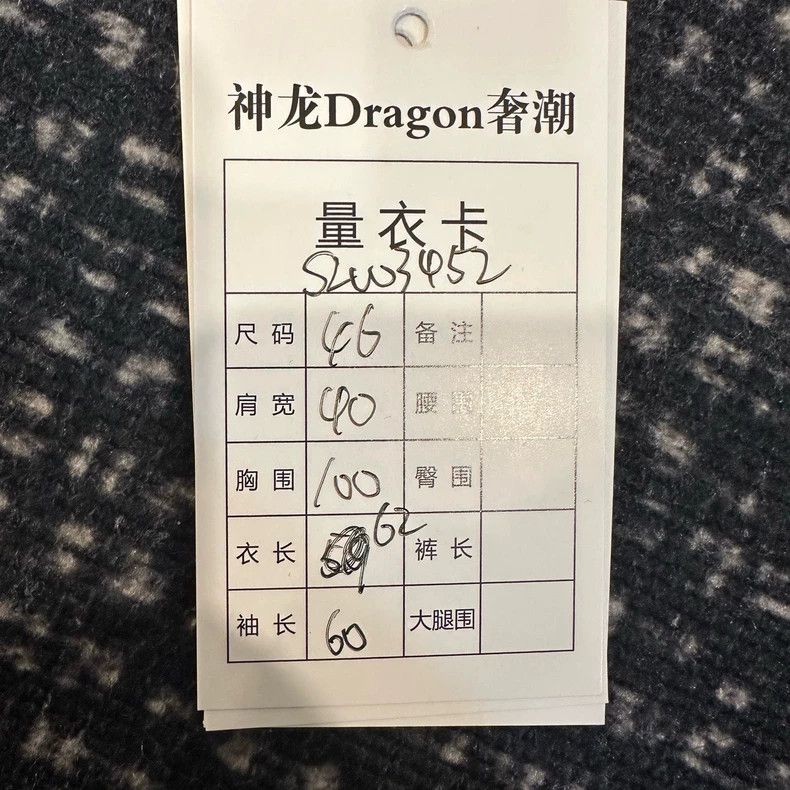 神龙Dragon奢潮
量衣卡
SZW3452
尺码 46 备注
肩宽 40 腰围
胸围 100 臀围
衣长 62 裤长
袖长 60 大腿围